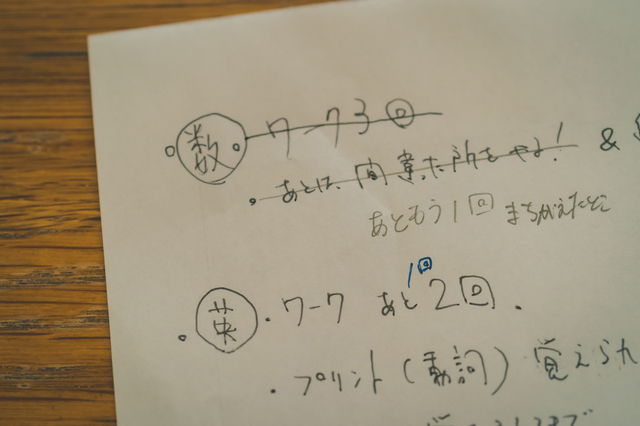 数 ワーク3回
・あとは、間違た所をやる! &
あともう1回 まちがえたとこ
1回
英・ワーク あと2回.
・プリント(動詞) 覚えられ